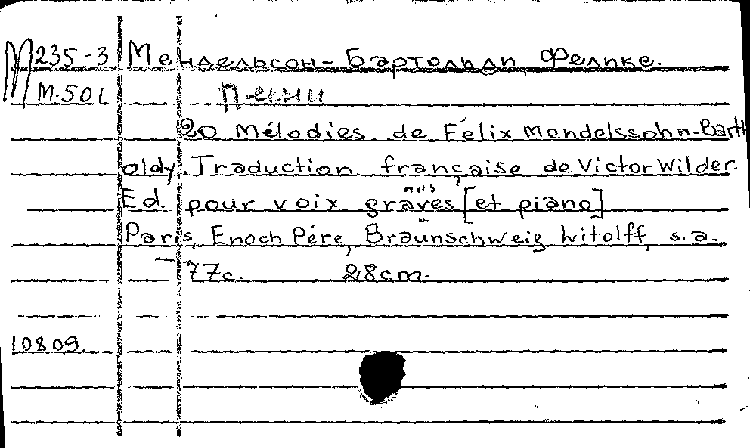 М 235-3 Мендельсон-Бартольди, Феликс.
М.501 Песни
20 Mélodies de Félix Mendelssohn-Barth
oldy. Traduction française de Victor Wilder.
Ed. pour voix graves [et piano]
Paris, Enoch Père, Braunschweig Litolff, s.a.
77c. 28cm.
10809.